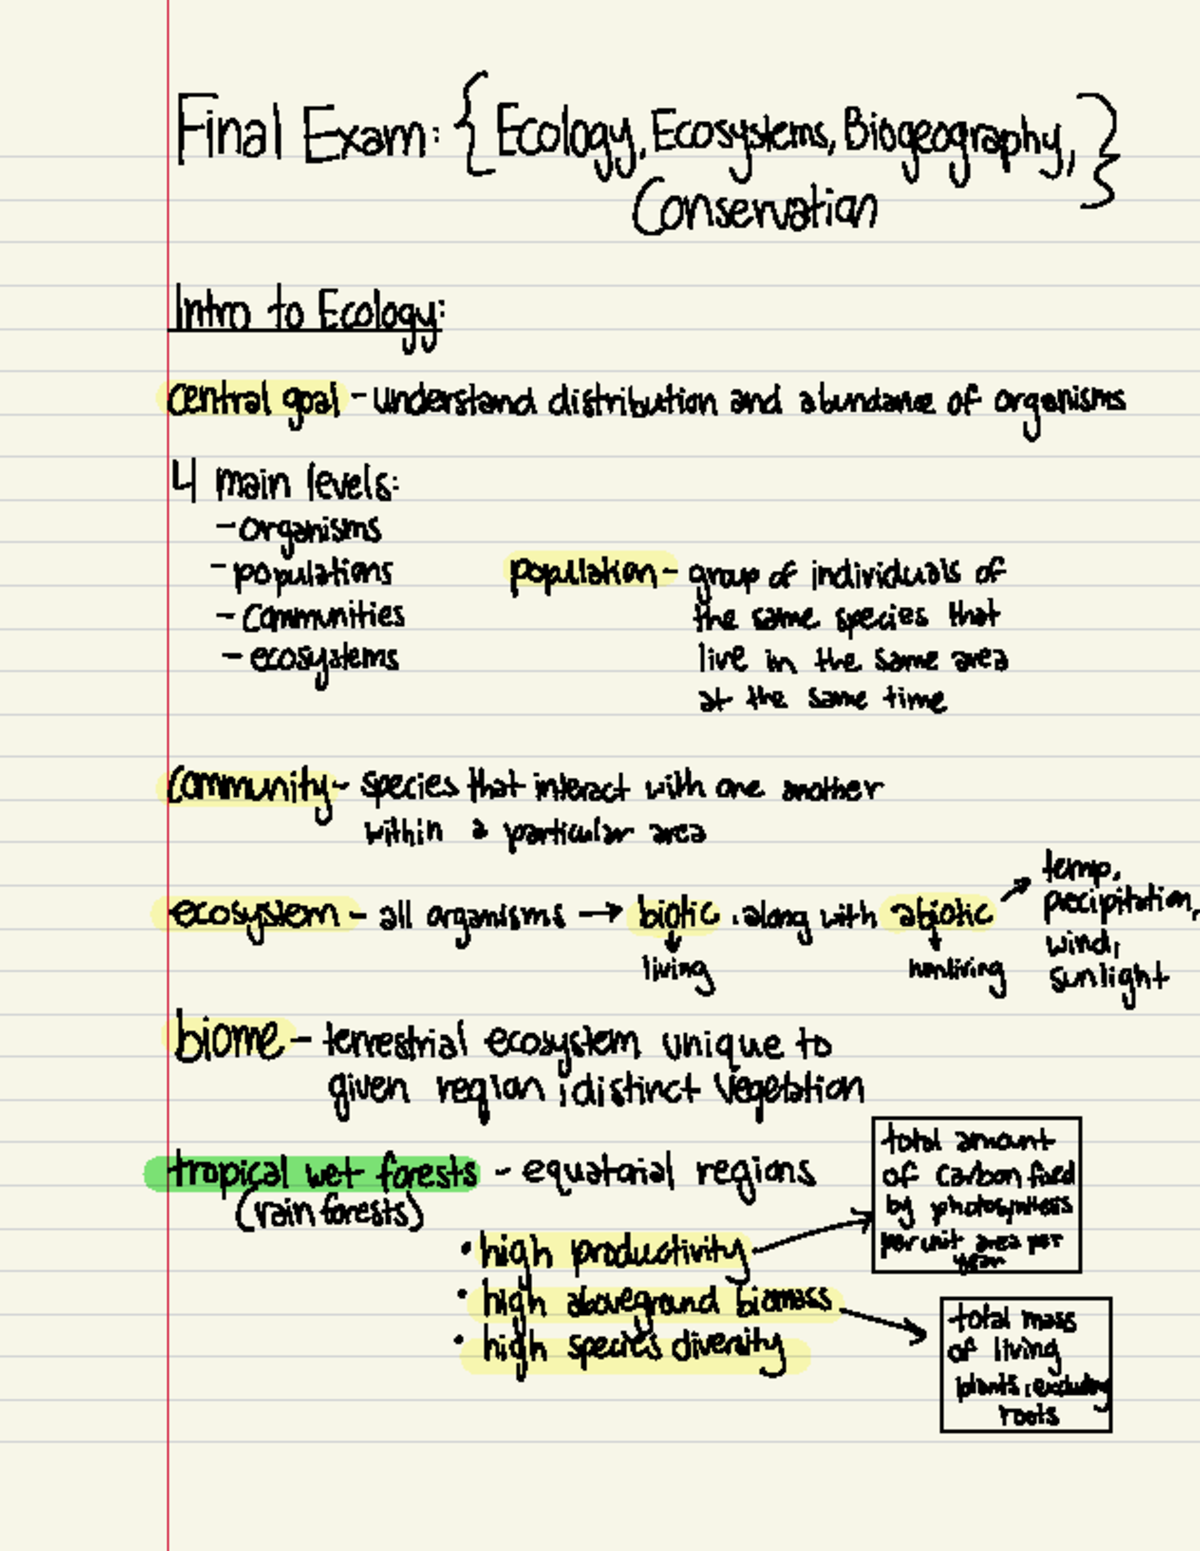 Final Exam: { Ecology, Ecosystems, Biogeography, }
Conservation
Intro to Ecology:
central goal - understand distribution and abundance of organisms
4 main levels:
- organisms
- populations
- Communities
- ecosystems
population - group of individuals of
the same species that
live in the same area
at the same time
Community - species that interact with one another
within a particular area
ecosystem - all organisms → biotic, along with abiotic
living
nonliving
temp,
precipitation,
wind,
sunlight
biome - terrestrial ecosystem unique to
given region; distinct vegetation
tropical wet forests - equatorial regions
(rain forests)
• high productivity
• high aboveground biomass
• high species diversity
total amount
of carbon fixed
by photosynthesis
per unit area per
year
total mass
of living
plants, excluding
roots